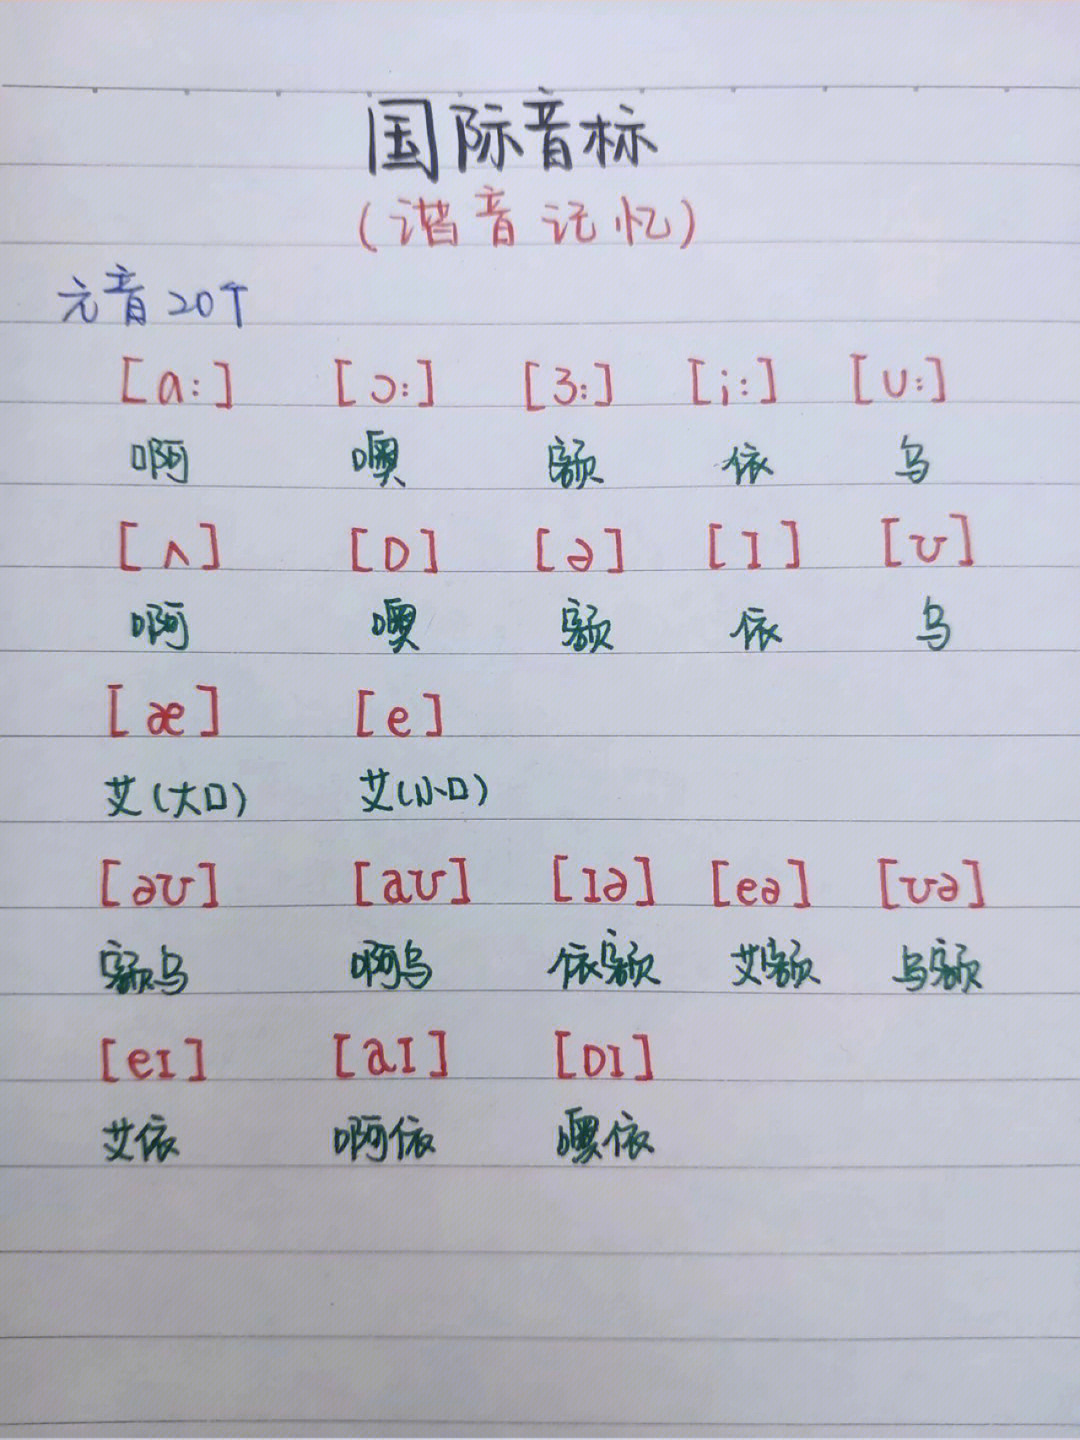 国际音标
(谐音记忆)
元音20个
[a:] [ɔ:] [3:] [i:] [u:]
啊 噢 额 依 乌
[ʌ] [ɒ] [ə] [ɪ] [ʊ]
啊 噢 额 依 乌
[æ] [e]
艾(大口) 艾(小口)
[əʊ] [aʊ] [ɪə] [eə] [ʊə]
额乌 啊乌 依额 艾额 乌额
[eɪ] [aɪ] [ɒɪ]
艾依 啊依 噢依